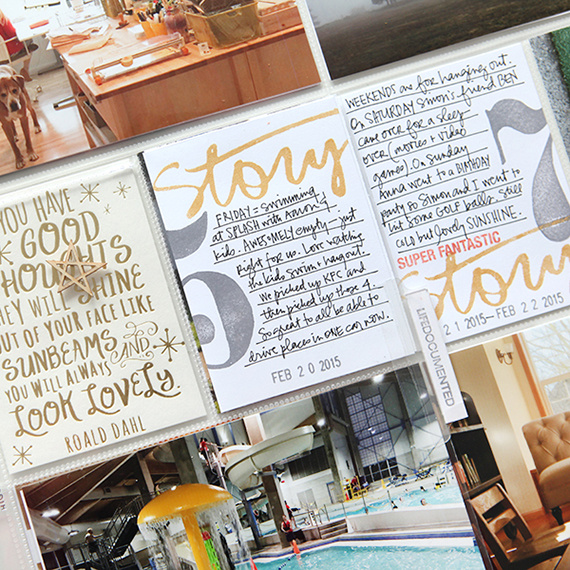 YOU HAVE
GOOD
THOUGHTS
THEY WILL SHINE
OUT OF YOUR FACE LIKE
SUNBEAMS AND
YOU WILL ALWAYS
LOOK LOVELY.
ROALD DAHL
Story
FRIDAY = Swimming
at SPLASH with Aaron &
kids. AWESOMELY empty - just
Right for us. Love watching
the kids swim + hang out.
We picked up KFC and
then picked up those 4.
So great to all be able to
drive places in ONE car now.
5
FEB 20 2015
WEEKENDS are for hanging out.
On SATURDAY Simon's friend BEN
came over for a sleep
over (movies + video
games). On Sunday
Anna went to a BIRTHDAY
party so Simon and I went to
hit some GOLF balls. Still
COLD but lovely SUNSHINE.
7
SUPER FANTASTIC
Story
21 2015 – FEB 22 2015
LIFE DOCUMENTED